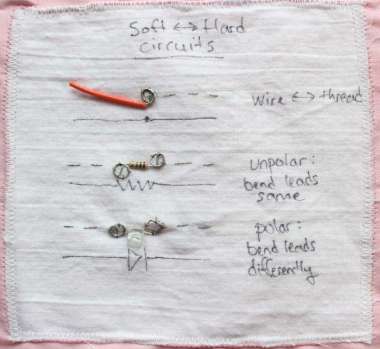 Soft <-> Hard
circuits
wire <-> thread
unpolar:
bend leads
same
polar:
bend leads
differently